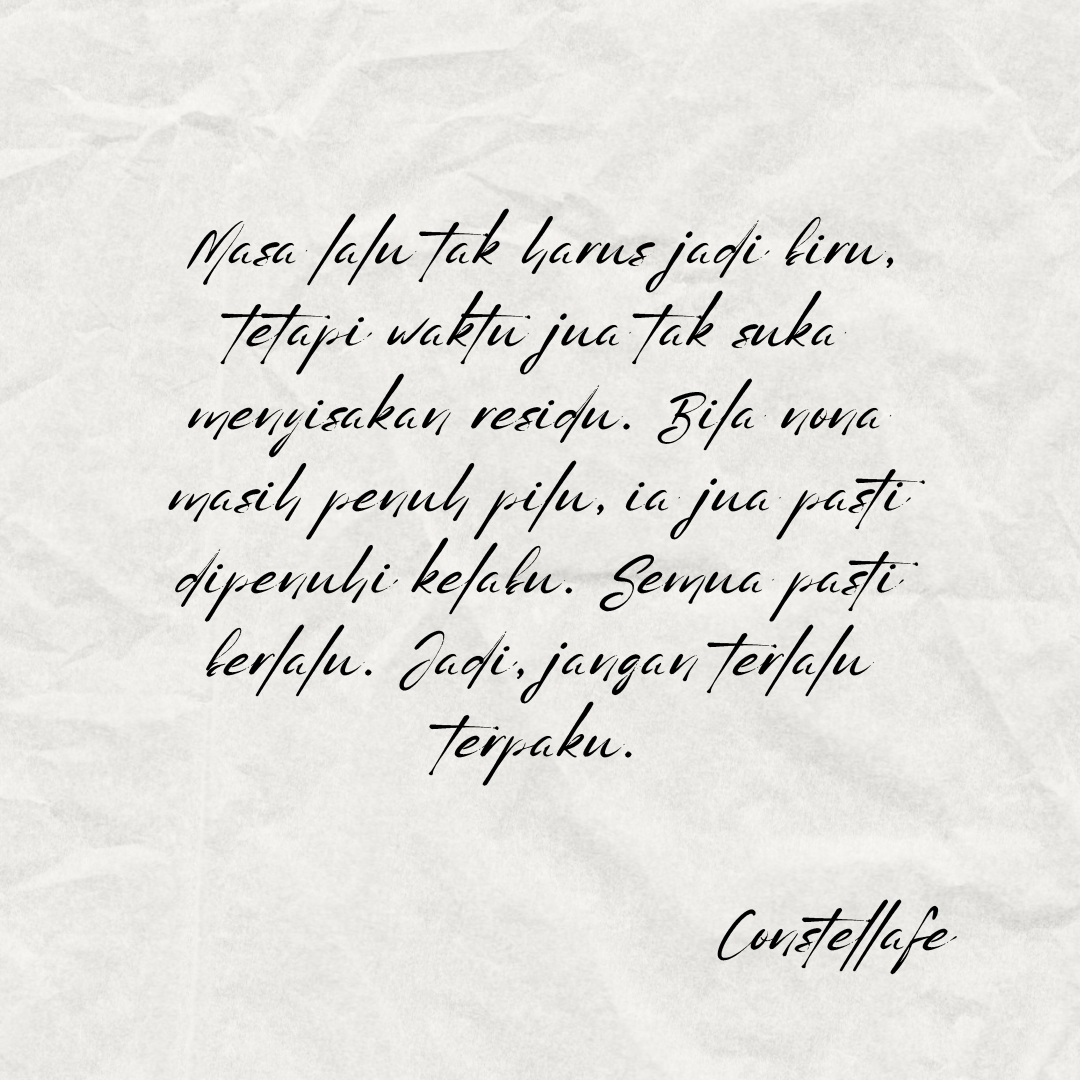 Masa lalu tak harus jadi biru,
tetapi waktu jua tak suka
menyisakan residu. Bila nona
masih penuh pilu, ia jua pasti
dipenuhi kelabu. Semua pasti
berlalu. Jadi, jangan terlalu
terpaku.
Constellafe